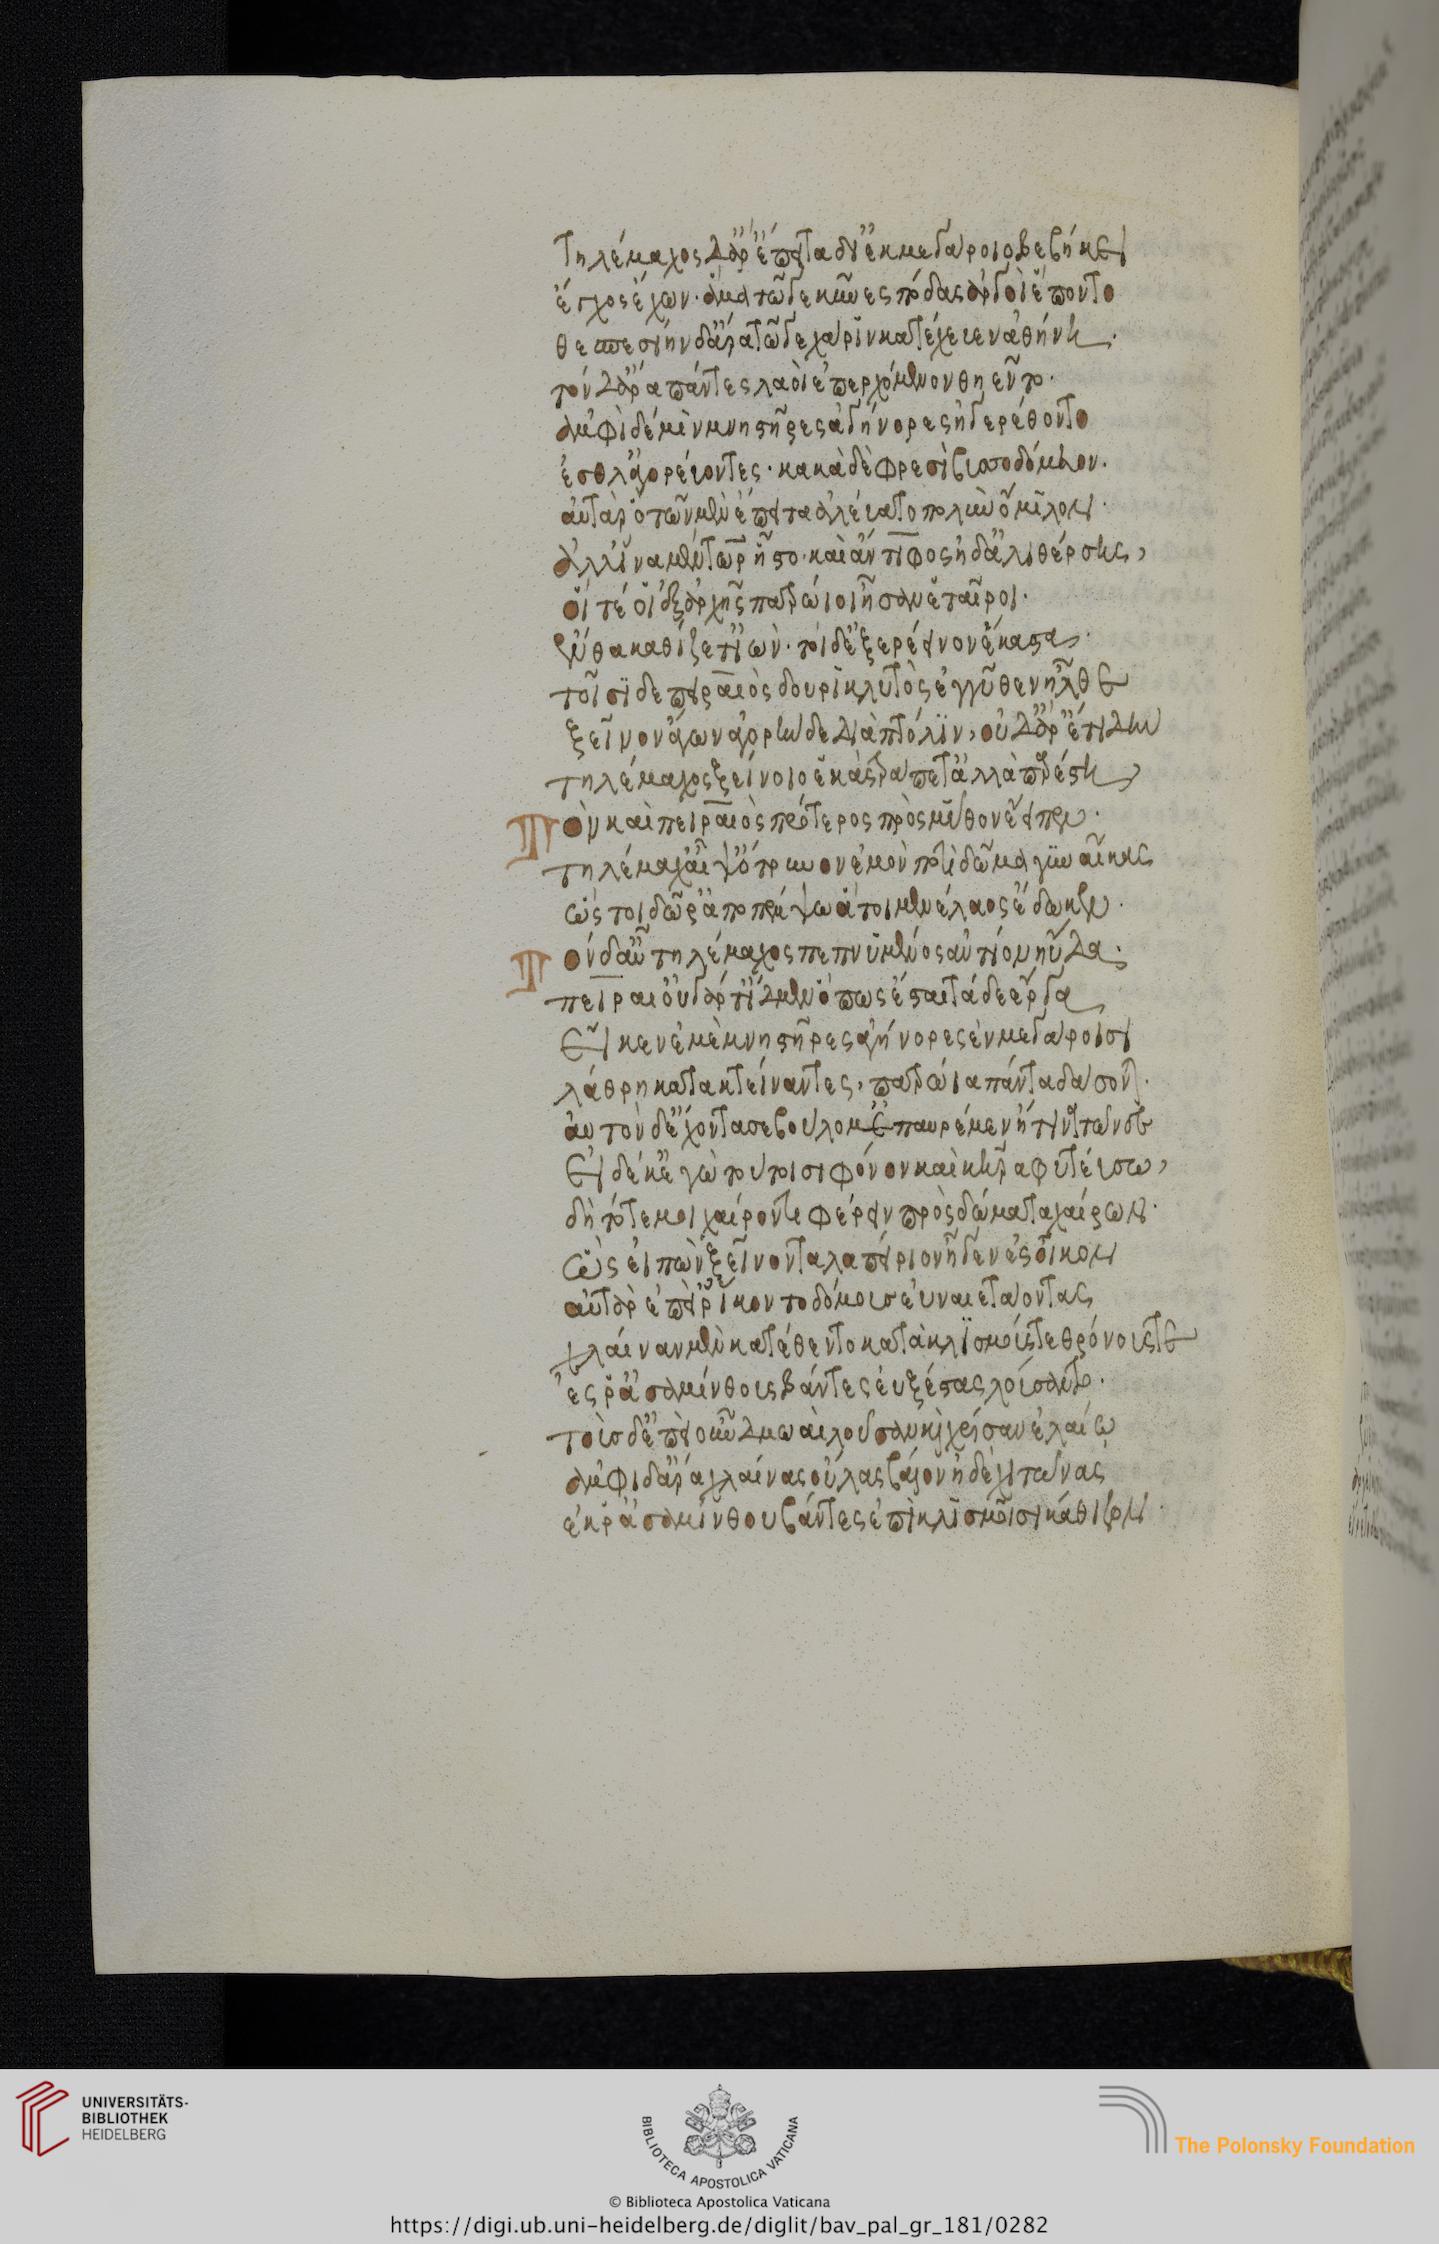 Τηλέμαχος δ' ἄρ' ἔπειτα διὲκ μεγάροιο βεβήκει
ἔγχος ἔχων· ἅμα τῶ γε κύνες πόδας ἀργοὶ ἕποντο
θεσπεσίην δ' ἄρα τῶ γε χάριν κατέχευεν ἀθήνη.
τὸν δ' ἄρα πάντες λαοὶ ἐπερχόμενον θηεῦντο·
ἀμφὶ δέ μιν μνηστῆρες ἀγήνορες ἠγερέθοντο
ἐσθλ' ἀγορεύοντες· κακὰ δὲ φρεσὶ βυσσοδόμευον.
αὐτὰρ ὁ τῶν μὲν ἔπειτα ἀλεύατο πουλὺν ὅμιλον·
ἀλλ' ἵνα μέντωρ ἧστο· καὶ ἄντιφος ἠδ' ἁλιθέρσης,
οἵ τέ οἱ ἐξ ἀρχῆς πατρώϊοι ἦσαν ἑταῖροι·
ἔνθα καθίζετ' ἰών· τοὶ δ' ἐξερέεινον ἕκαστα·
τοῖσι δὲ πείραιος δουρικλυτὸς ἐγγύθεν ἦλθε
ξεῖνον ἄγων ἀγορὴν δὲ διὰ πτόλιν, οὐδ' ἄρ' ἔτι δὴν
τηλέμαχος ξείνοιο ἑκὰς τράπετ' ἀλλὰ παρέστη,
Τὸν καὶ πείραιος πρότερος πρὸς μῦθον ἔειπεν·
τηλέμαχ' αἶψ' ὄτρυνον ἐμὸν ποτὶ δῶμα γυναῖκας
ὥς τοι δῶρ' ἀποπέμψω ἅ τοι μενέλαος ἔδωκεν·
Τὸν δ' αὖ τηλέμαχος πεπνυμένος ἀντίον ηὔδα·
πείραι' οὐ γάρ τ' ἴδμεν ὅπως ἔσται τάδε ἔργα
Εἴ κεν ἐμὲ μνηστῆρες ἀγήνορες ἐν μεγάροισι
λάθρη κατακτείναντες, πατρώϊα πάντα δάσονται·
αὐτὸν δ' ἔχοντά σε βούλομ' ἐπαυρέμεν ἤ τινα τῶνδε
Εἰ δέ κ' ἐγὼ τούτοισι φόνον καὶ κῆρα φυτεύσω,
δὴ τότε μοι χαίροντι φέρειν πρὸς δώματα χαίρων·
Ὣς εἰπὼν ξεῖνον ταλαπείριον ἦγεν ἐς οἶκον
αὐτὰρ ἐπεί ῥ' ἵκοντο δόμους εὖ ναιετάοντας
χλαίναν μὲν κατέθεντο κατὰ κλισμούς τε θρόνους τε
ἐς ῥ' ἀσαμίνθους βάντες ἐυξέστας λούσαντο·
τοὺς δ' ἐπεὶ οὖν δμωαὶ λοῦσαν καὶ χρῖσαν ἐλαίῳ
ἀμφὶ δ' ἄρα χλαίνας οὔλας βάλον ἠδὲ χιτῶνας
ἔκ ῥ' ἀσαμίνθου βάντες ἐπὶ κλισμοῖσι κάθιζον·
UNIVERSITÄTS-
BIBLIOTHEK
HEIDELBERG
BIBLIOTECA APOSTOLICA VATICANA
The Polonsky Foundation
© Biblioteca Apostolica Vaticana
https://digi.ub.uni-heidelberg.de/diglit/bav_pal_gr_181/0282